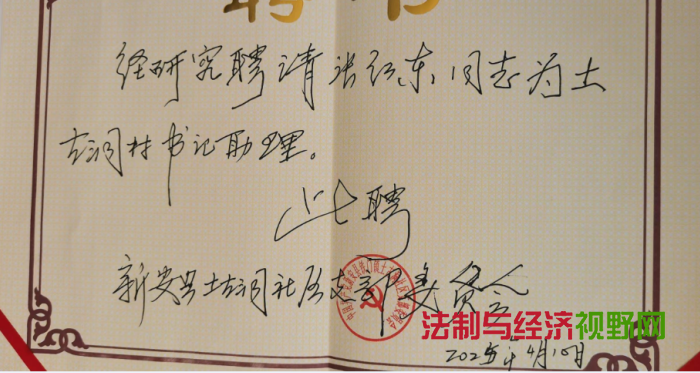 聘书
经研究聘请张红东同志为土
古洞村书记助理。
此聘
新安县土古洞社区支部委员会
法制与经济视野网
2025年4月10日